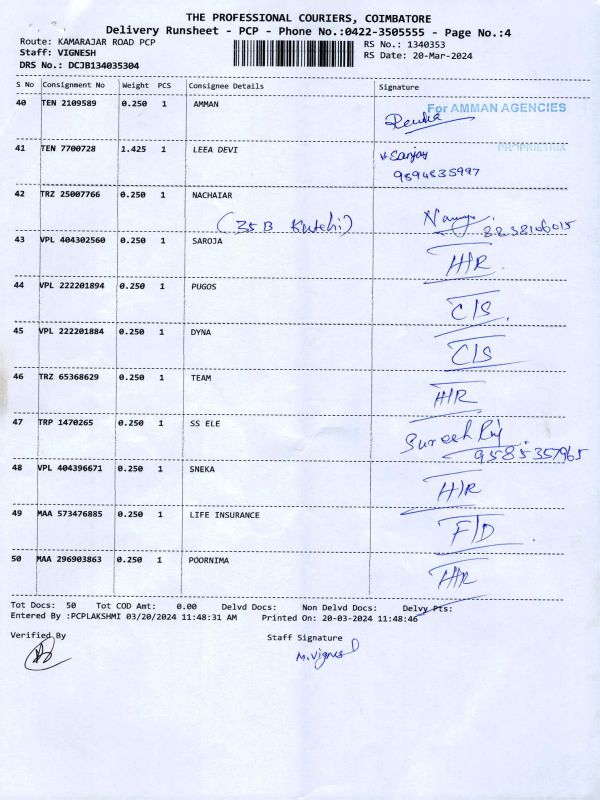 THE PROFESSIONAL COURIERS, COIMBATORE
Delivery Runsheet - PCP - Phone No.:0422-3505555 - Page No.:4
Route: KAMARAJAR ROAD PCP RS No.: 1340353
Staff: VIGNESH RS Date: 20-Mar-2024
DRS No.: DCJB134035304
S No Consignment No Weight PCS Consignee Details Signature
40 TEN 2109589 0.250 1 AMMAN For AMMAN AGENCIES
Renuka
PROPRIETRIX
41 TEN 7700728 1.425 1 LEEA DEVI Sanjay
9894835997
42 TRZ 25007766 0.250 1 NACHAIAR
(35 B Kutchi)
43 VPL 404302560 0.250 1 SAROJA H/R
44 VPL 222201894 0.250 1 PUGOS C/S
45 VPL 222201884 0.250 1 DYNA C/S
46 TRZ 65368629 0.250 1 TEAM H/R
47 TRP 1470265 0.250 1 SS ELE Suresh Raj
9585357965
48 VPL 404396671 0.250 1 SNEKA H/R
49 MAA 573476885 0.250 1 LIFE INSURANCE F/D
50 MAA 296903863 0.250 1 POORNIMA H/R
Tot Docs: 50 Tot COD Amt: 0.00 Delvd Docs: Non Delvd Docs: Delvy Pts:
Entered By :PCPLAKSHMI 03/20/2024 11:48:31 AM Printed On: 20-03-2024 11:48:46
Verified By Staff Signature
M.Vignesh